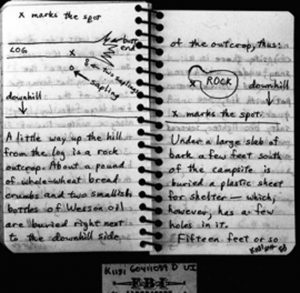 x marks the spot
LOG
x
burnt
end
o
2 saplings
sapling
downhill
A little way up the hill
from the log is a rock
outcrop. About a pound
of whole-wheat bread
crumbs and two smallish
bottles of Wesson oil
are buried right next
to the downhill side
of the outcrop, thus:
x
ROCK
downhill
x marks the spot.
Under a large slab of
bark a few feet south
of the campsite is
buried a plastic sheet
for shelter — which,
however, has a few
holes in it.
Fifteen feet or so
F·B·I